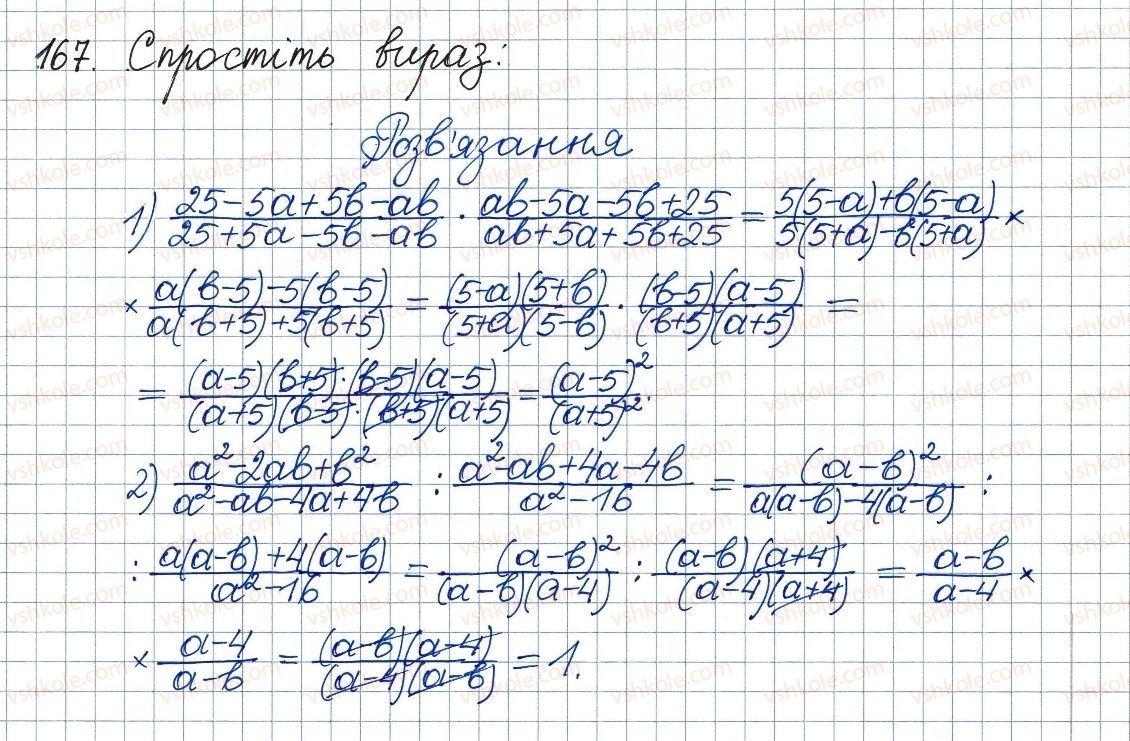 167. Спростіть вираз:
Розв'язання
1) (25-5a+5b-ab)/(25+5a-5b-ab) · (ab-5a-5b+25)/(ab+5a+5b+25) = (5(5-a)+b(5-a))/(5(5+a)-b(5+a)) ×
× (a(b-5)-5(b-5))/(a(b+5)+5(b+5)) = ((5-a)(5+b))/((5+a)(5-b)) · ((b-5)(a-5))/((b+5)(a+5)) =
= ((a-5)(b+5)·(b-5)(a-5))/((a+5)(b-5)·(b+5)(a+5)) = (a-5)²/(a+5)².
2) (a²-2ab+b²)/(a²-ab-4a+4b) : (a²-ab+4a-4b)/(a²-16) = (a-b)²/(a(a-b)-4(a-b)) :
: (a(a-b)+4(a-b))/(a²-16) = (a-b)²/((a-b)(a-4)) : ((a-b)(a+4))/((a-4)(a+4)) = (a-b)/(a-4) ×
× (a-4)/(a-b) = ((a-b)(a-4))/((a-4)(a-b)) = 1.
vshkole.com